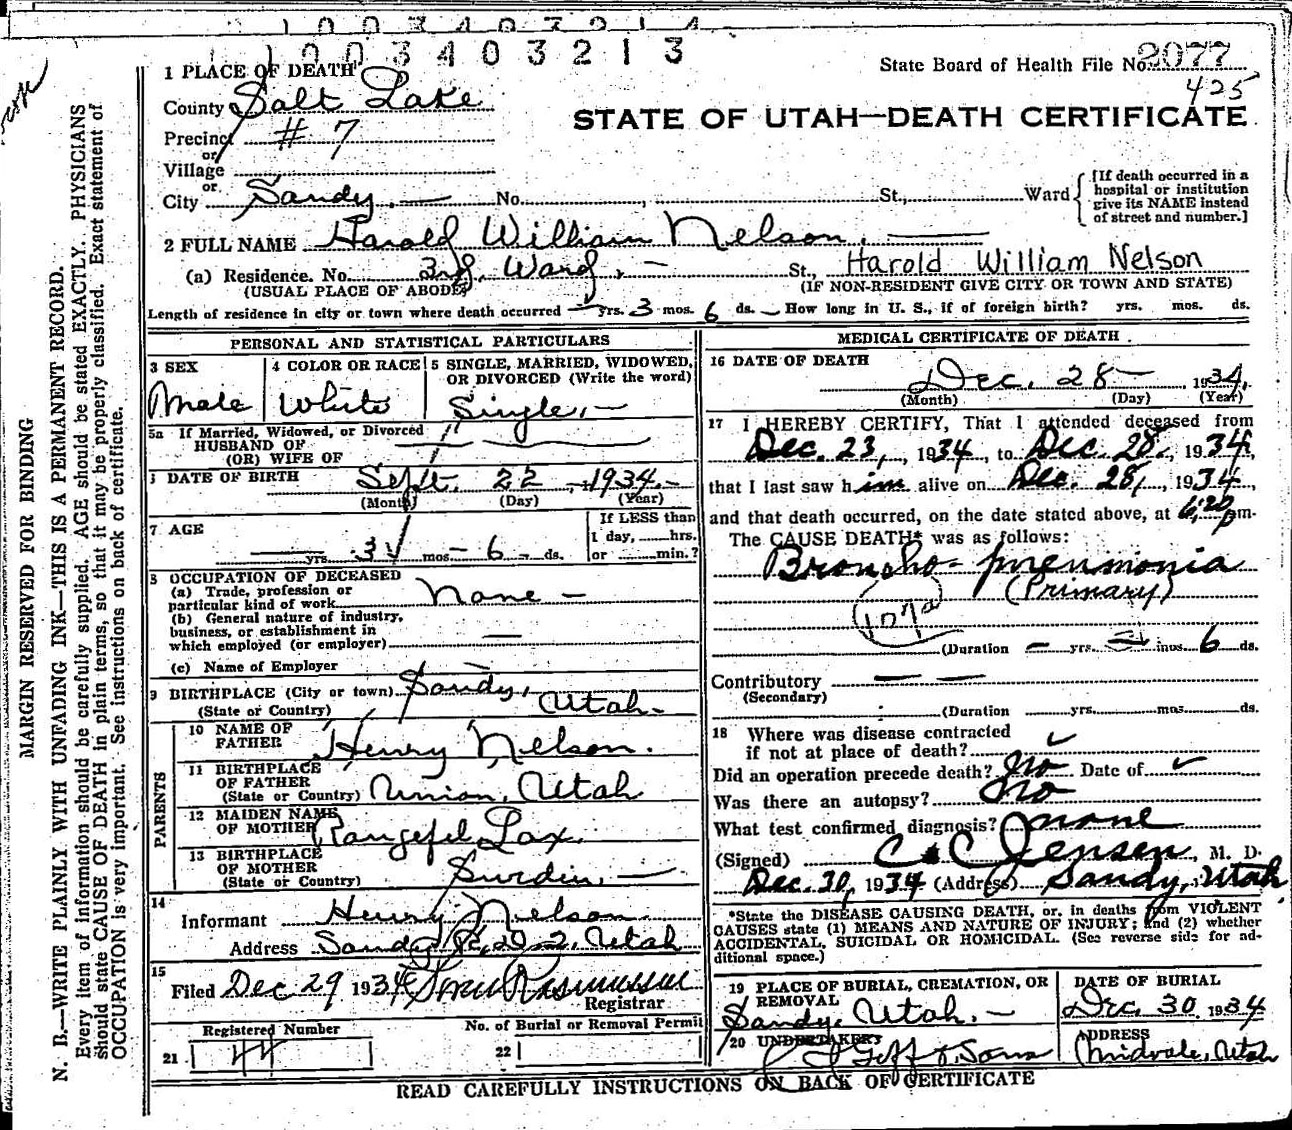 1003403214
1003403213
State Board of Health File No. 2077
425
STATE OF UTAH—DEATH CERTIFICATE
1 PLACE OF DEATH
County Salt Lake
Precinct # 7
or
Village
or
City Sandy. No. , St., Ward
[If death occurred in a
hospital or institution
give its NAME instead
of street and number.]
2 FULL NAME Harold William Nelson.
(a) Residence. No. 3rd. Ward, St., Harold William Nelson
(USUAL PLACE OF ABODE) (IF NON-RESIDENT GIVE CITY OR TOWN AND STATE)
Length of residence in city or town where death occurred — yrs. 3 mos. 6 ds. — How long in U. S., if of foreign birth? yrs. mos. ds.
PERSONAL AND STATISTICAL PARTICULARS
3 SEX 4 COLOR OR RACE 5 SINGLE, MARRIED, WIDOWED,
OR DIVORCED (Write the word)
Male White Single. —
5a If Married, Widowed, or Divorced
HUSBAND OF
(OR) WIFE OF
DATE OF BIRTH Sept. 22 — 1934. —
(Month) (Day) (Year)
7 AGE If LESS than
1 day, hrs.
— yrs. 3 mos — 6 — ds. or min.?
8 OCCUPATION OF DECEASED
(a) Trade, profession or
particular kind of work None —
(b) General nature of industry,
business, or establishment in
which employed (or employer) —
(c) Name of Employer —
9 BIRTHPLACE (City or town) Sandy,
(State or Country) Utah —
PARENTS
10 NAME OF
FATHER Henry Nelson.
11 BIRTHPLACE
OF FATHER
(State or Country) Union, Utah
12 MAIDEN NAME
OF MOTHER Lax.
13 BIRTHPLACE
OF MOTHER
(State or Country) Surden, —
14
Informant Henry Nelson
Address Sandy, Utah
15
Filed Dec 29 1934 Rasmussen
Registrar
Registered Number No. of Burial or Removal Permit
21 44 22
MEDICAL CERTIFICATE OF DEATH
16 DATE OF DEATH
Dec. 28 — , 1934,
(Month) (Day) (Year)
17 I HEREBY CERTIFY, That I attended deceased from
Dec. 23, , 1934, to Dec. 28, , 1934,
that I last saw him alive on Dec. 28, , 1934,
and that death occurred, on the date stated above, at 6:20 pm.
The CAUSE DEATH* was as follows:
Broncho - pneumonia
(Primary)
107a
(Duration — yrs. — mos. 6 ds.
Contributory — —
(Secondary)
(Duration yrs. mos. ds.
18 Where was disease contracted
if not at place of death? ✓
Did an operation precede death? no Date of ✓
Was there an autopsy? no
What test confirmed diagnosis? none
(Signed) C C Jensen, M. D.
Dec. 30, 1934 (Address) Sandy, Utah
*State the DISEASE CAUSING DEATH, or, in deaths from VIOLENT
CAUSES state (1) MEANS AND NATURE OF INJURY; and (2) whether
ACCIDENTAL, SUICIDAL OR HOMICIDAL. (See reverse side for ad-
ditional space.)
19 PLACE OF BURIAL, CREMATION, OR
REMOVAL
Sandy, Utah. —
DATE OF BURIAL
Dec. 30 1934
20 UNDERTAKER
Goff & Sons
ADDRESS
Midvale, Utah
READ CAREFULLY INSTRUCTIONS ON BACK OF CERTIFICATE
MARGIN RESERVED FOR BINDING
N. B.—WRITE PLAINLY WITH UNFADING INK—THIS IS A PERMANENT RECORD.
Every item of information should be carefully supplied. AGE should be stated EXACTLY. PHYSICIANS
should state CAUSE OF DEATH in plain terms, so that it may be properly classified. Exact statement of
OCCUPATION is very important. See instructions on back of certificate.